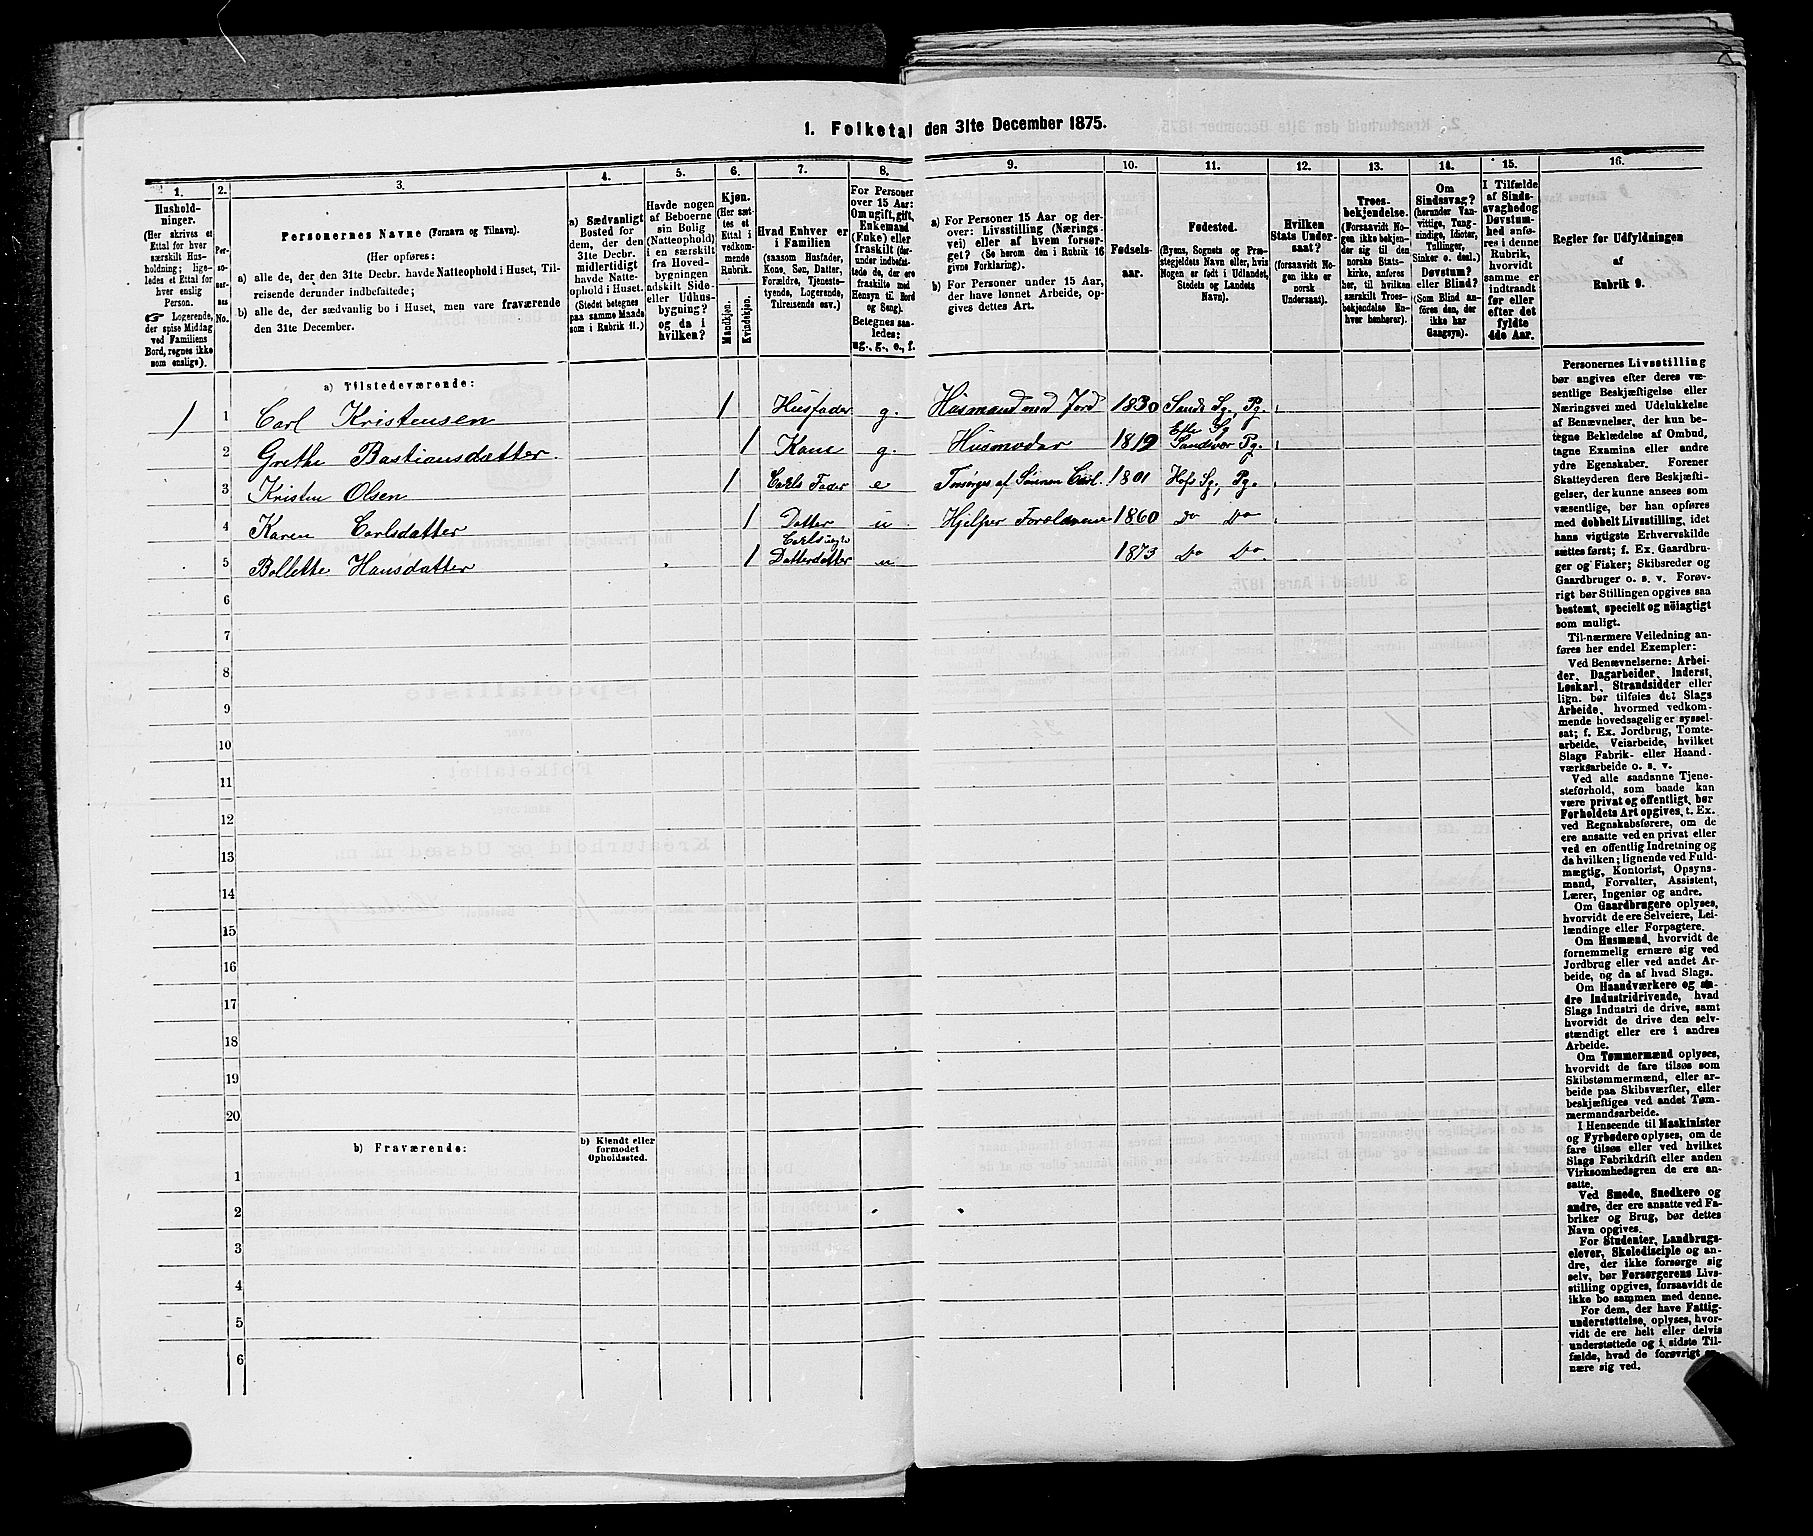 1. Folketal den 31te December 1875.
1.
Husholdninger.
(Her skrives et
Ettal for hver
særskilt Husholdning; ligeledes
et Ettal for
hver enslig
Person.
☞ Logerende,
der spise Middag
ved Familiens
Bord, regnes ikke
som enslige).
2.
Personernes
No.
3.
Personernes Navne (Fornavn og Tilnavn).
(Her opføres:
a) alle de, der den 31te Decbr. havde Natteophold i Huset, Tilreisende
derunder indbefattede;
b) alle de, der sædvanlig bo i Huset, men vare fraværende
den 31te December.
4.
a) Sædvanligt
Bosted for
dem, der den
31te Decbr.
midlertidigt
havde Natteophold
i Huset.
(Stedet betegnes
paa samme Maade
som i Rubrik 11.)
5.
Havde nogen
af Beboerne
sin Bolig
(Natteophold)
i en særskilt
fra Hovedbygningen
adskilt Side- eller
Udhusbygning?
og da i
hvilken?
6.
Kjøn.
(Her sættes
et
Ettal i
vedkommende
Rubrik.
Mandkjøn.
Kvindekjøn.
7.
Hvad Enhver er
i Familien
(saasom Husfader,
Kone, Søn, Datter,
Forældre, Tjenestetyende,
Logerende,
Tilreisende osv.)
8.
For Personer
over 15 Aar:
Om ugift, gift,
Enkemand
(Enke) eller
fraskilt (herunder
indbefattede
de, der ere
fraskilte med
Hensyn til Bord
og Seng).
Betegnes saaledes:
ug., g., e., f.
9.
a) For Personer 15 Aar og derover:
Livsstilling (Næringsvei)
eller af hvem forsørget?
(Se herom den i Rubrik 16
givne Forklaring).
b) For Personer under 15 Aar,
der have lønnet Arbeide, opgives
dettes Art.
10.
Fødselsaar.
11.
Fødested.
(Byens, Sognets og Præstegjeldets
Navn eller, hvis
Nogen er født i Udlandet,
Stedets og Landets
Navn).
12.
Hvilken
Stats Undersaat?
(forsaavidt Nogen
ikke er
norsk
Undersaat).
13.
Troesbekjendelse.
(Forsaavidt Nogen
ikke bekjender
sig til den
norske Statskirke,
anføres
her, til hvilken
særskilt Troesbekjendelse
Enhver
henhører).
14.
Om
Sindssvag?
(herunder Vanvittige,
Tungsindige,
Idioter,
Tullinger,
Sinker o. desl.)
Døvstum?
eller Blind?
(Som Blind anføres
den, der
ikke har
Gangsyn).
15.
I Tilfælde
af Sindssvaghed
og
Døvstumhed
anføres
i denne
Rubrik,
hvorvidt
samme er
indtraadt
før eller
efter det
fyldte
4de Aar.
16.
Regler for Udfyldningen
af
Rubrik 9.
a) Tilstedeværende:
1 1 Carl Kristensen 1 Husfader g. Husmand med Jord 1830 Sande Sg., Pg.
2 Grethe Bastiansdatter. 1 Kone g. Husmoder 1819 Efte Sg Sandsvær Pg.
3 Kristen Olsen 1 Carls Fader e Forsørges af Sønnen Carl. 1801 Hofs Sg, Pg.
4 Karen Carlsdatter 1 Datter u Hjelper Forældrene 1860 Do Do
5 Bollette Hansdatter 1 Carls Datterdatter u 1873 Do Do
6
7
8
9
10
11
12
13
14
15
16
17
18
19
20
b) Fraværende:
b) Kjendt eller
formodet
Opholdssted.
1
2
3
4
5
6
Personernes Livsstilling
bør angives efter deres væsentlige
Beskjæftigelse eller
Næringsvei med Udelukkelse
af Benævnelser, der kun betegne
Beklædelse af Ombud,
tagne Examina eller andre
ydre Egenskaber. Forener
Skatteyderen flere Beskjæftigelser,
der kunne ansees som
væsentlige, bør han opføres
med dobbelt Livsstilling, idet
hans vigtigste Erhvervskilde
sættes først; f. Ex. Gaardbruger
og Fisker; Skibsreder og
Gaardbruger o. s. v. Forøvrigt
bør Stillingen opgives saa
bestemt, specielt og nøiagtigt
som muligt.
Til nærmere Veiledning anføres
her endel Exempler:
Ved Benævnelserne: Arbeider,
Dagarbeider, Inderst,
Løskarl, Strandsidder eller
lign. bør tilføies det Slags
Arbeide, hvormed vedkommende
hovedsagelig er sysselsat;
f. Ex. Jordbrug, Tomtearbeide,
Veiarbeide, hvilket
Slags Fabrik- eller Haandværksarbeide
o. s. v.
Ved alle saadanne Tjenesteforhold,
som baade kan
være privat og offentligt, bør
Forholdets Art opgives, t. Ex.
ved Regnskabsførere, om de
ere ansatte ved en privat eller
ved en offentlig Indretning og
da hvilken; lignende ved Fuldmægtig,
Kontorist, Opsynsmand,
Forvalter, Assistent,
Lærer, Ingeniør og andre.
Om Gaardbrugere oplyses,
hvorvidt de ere Selveiere, Leilændinge
eller Forpagtere.
Om Husmænd, hvorvidt de
fornemmelig ernære sig ved
Jordbrug eller ved andet Arbeide,
og da af hvad Slags.
Om Haandværkere og andre
Industridrivende, hvad
Slags Industri de drive, samt
hvorvidt de drive den selvstændigt
eller ere i andres
Arbeide.
Om Tømmermænd oplyses,
hvorvidt de fare tilsøs som
Skibstømmermænd, eller arbeide
paa Skibsværfter, eller
beskjæftiges ved andet Tømmermandsarbeide.
I Henseende til Maskinister
og Fyrbødere oplyses, om de
fare tilsøs eller ved hvilket
Slags Fabrikdrift eller anden
Virksomhedsgren de ere ansatte.
Ved Smede, Snedkere og
andre, der ere ansatte ved Fabriker
og Brug, bør dettes
Navn opgives.
For Studenter, Landbrugselever,
Skoledisciple og andre,
der ikke forsørge sig
selv, bør Forsørgerens Livsstilling
opgives, forsaavidt de
ikke bo sammen med denne.
For dem, der have Fattigunderstøttelse,
oplyses, hvorvidt
de ere helt eller delvis
understøttede og i sidste Tilfælde,
hvad de forøvrigt ernære
sig ved.